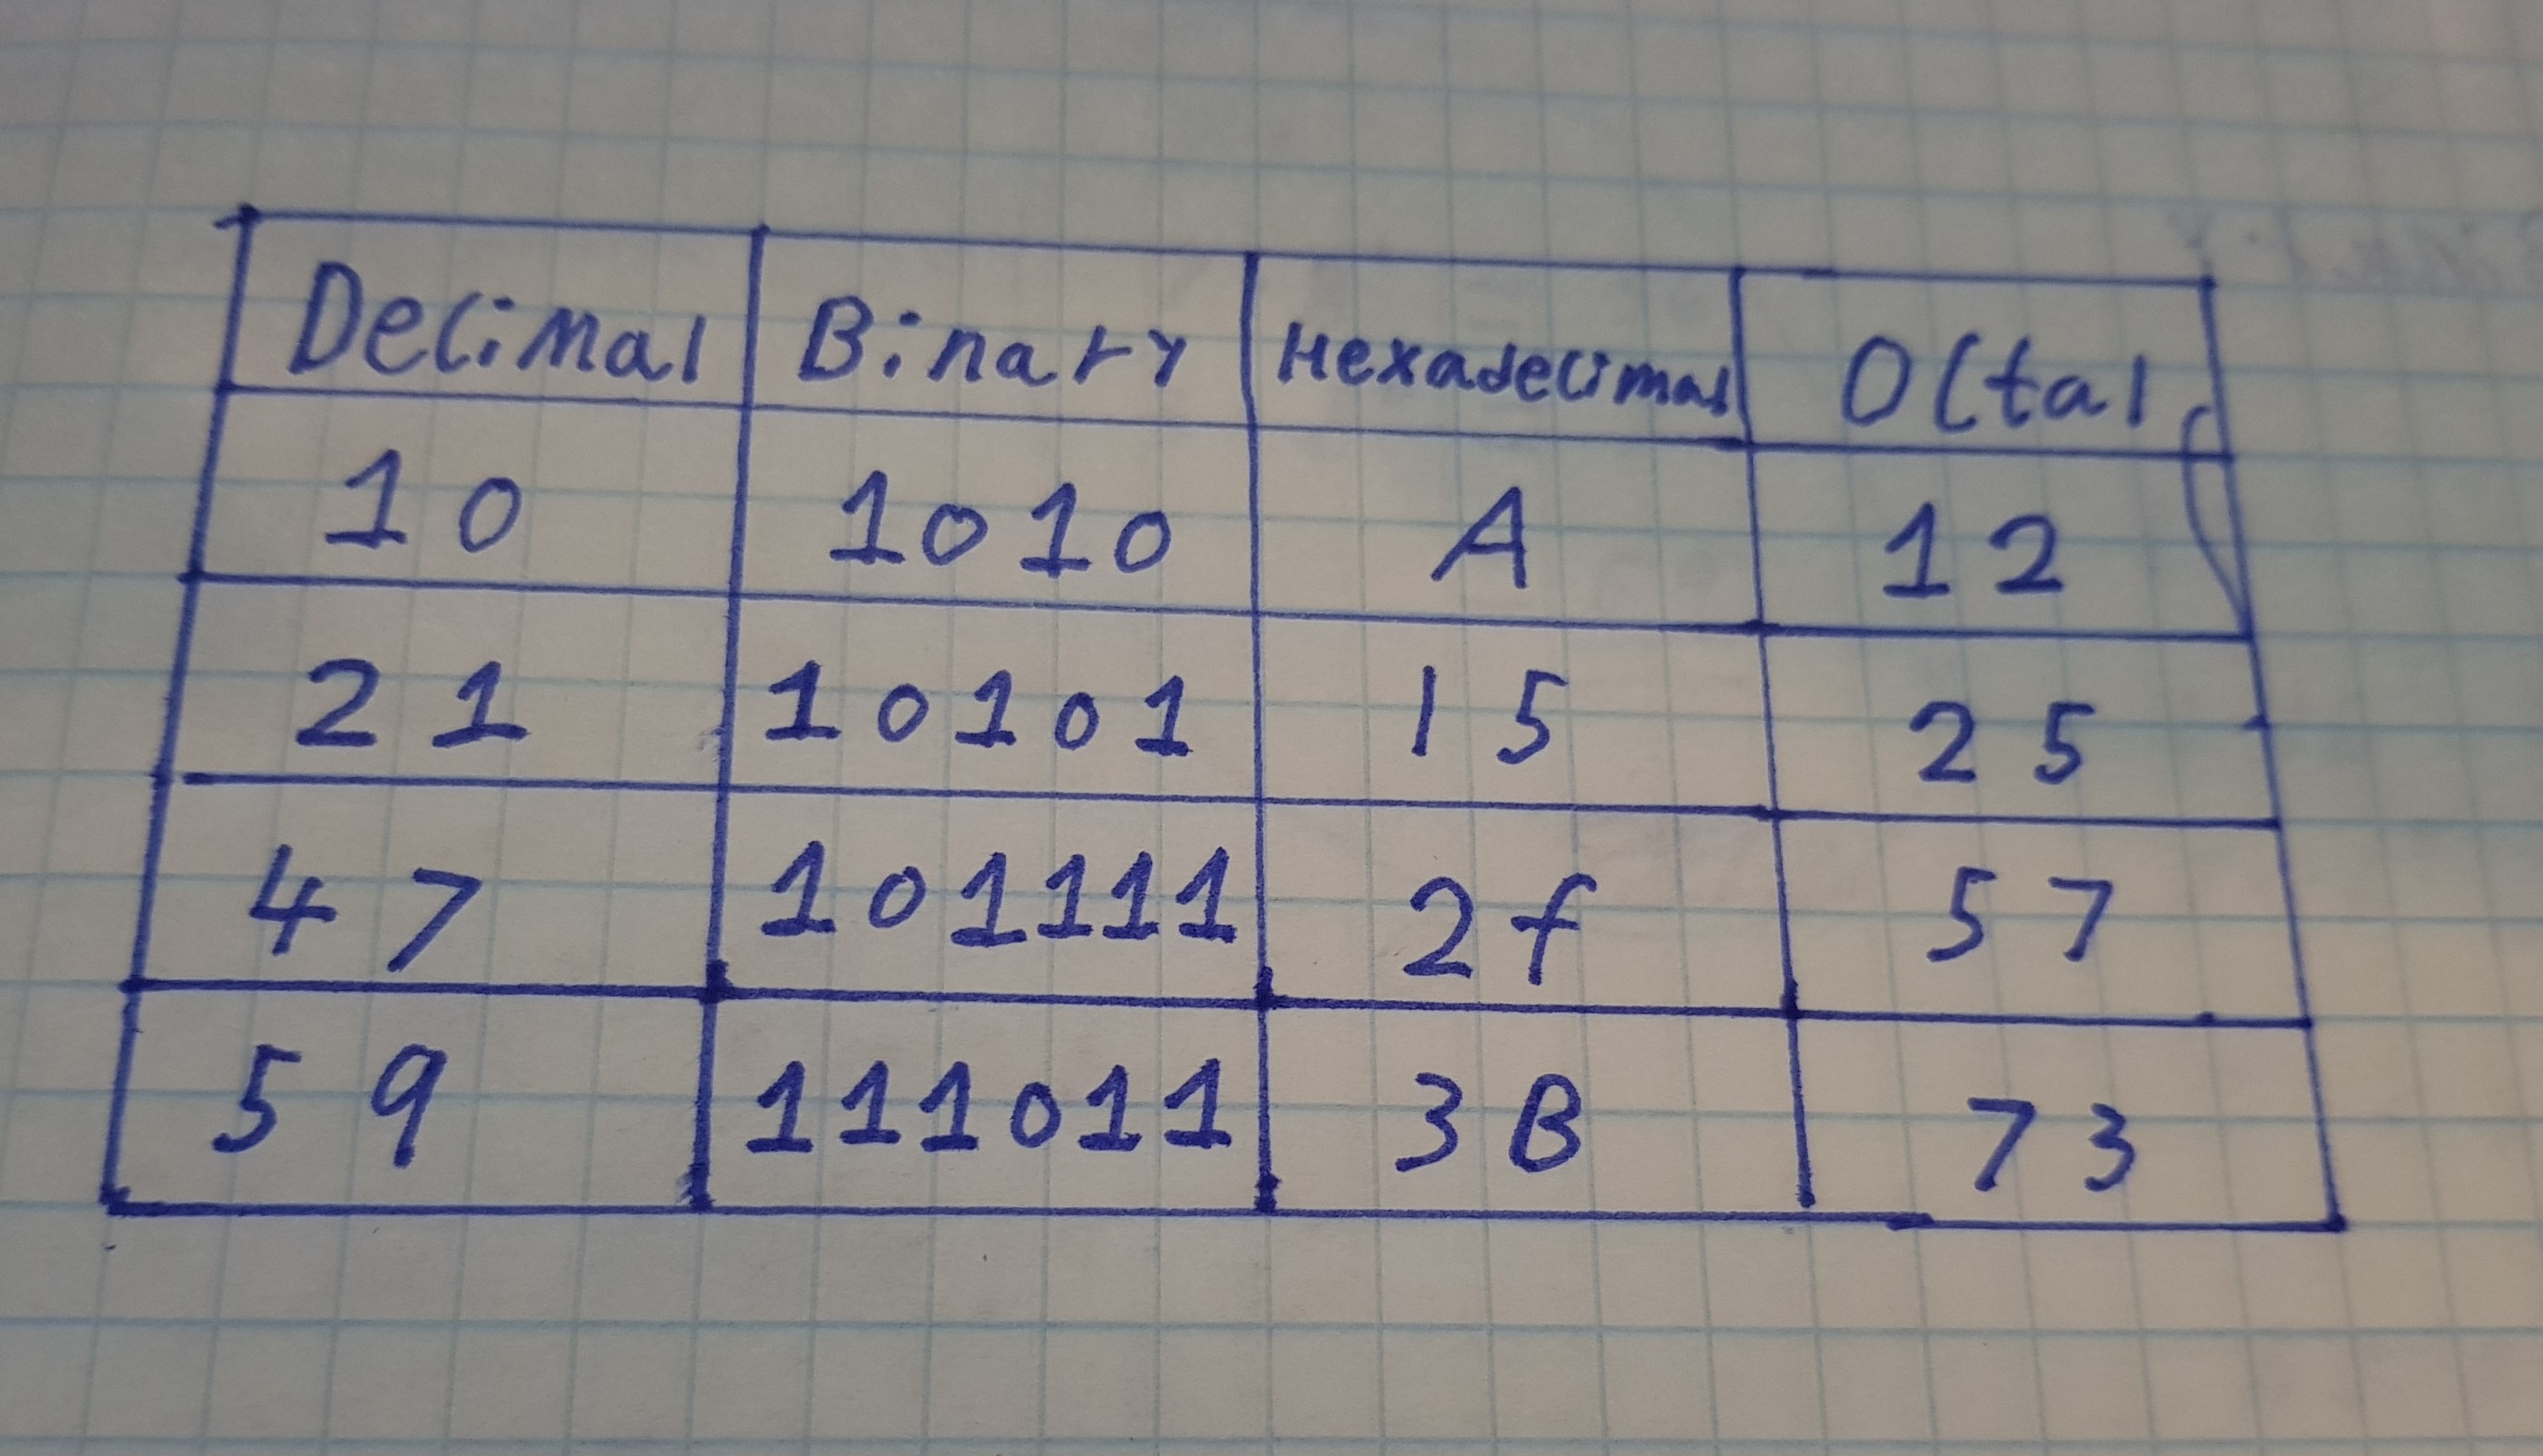 Decimal Binary Hexadecimal Octal
10 1010 A 12
21 10101 15 25
47 101111 2f 57
59 111011 3B 73